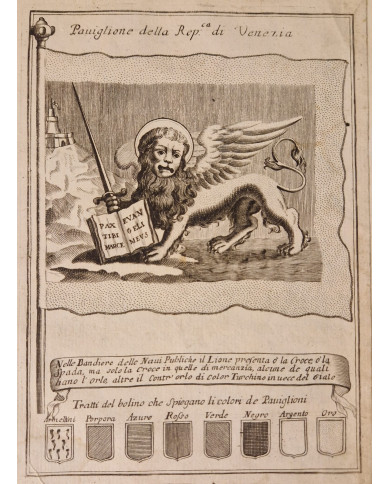 Pauiglione della Rep.ca di Venezia
PAX EVAN
TIBI GELI
MARCE MEVS
Nelle Bandiere delle Naui Publiche il Lione presenta ó la Croce, ó la
Spada, ma solo la Croce in quelle di mercanzia, alcune de quali
hano l'orlo, altre il Contr'orlo di color Turchino in uece del Gialo
Tratti del bolino che Spiegano li colori de Pauiglioni
Armellini Porpora Azuro Rosso Verde Negro Argento Oro